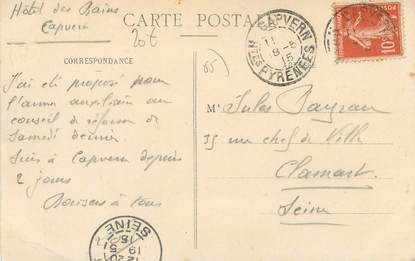 Hôtel des Bains
Capvern
CARTE POSTALE
20f
CORRESPONDANCE
J'ai été proposé pour
l'arme auxiliaire au
conseil de réforme de
Samedi dernier
Suis à Capvern depuis
2 jours
Baisers à tous
CAPVERN
11
8
15
HTES PYRENEES
10c
65)
M. Jules Bayrau
35 rue chef de Ville
Clamart
Seine
SEINE